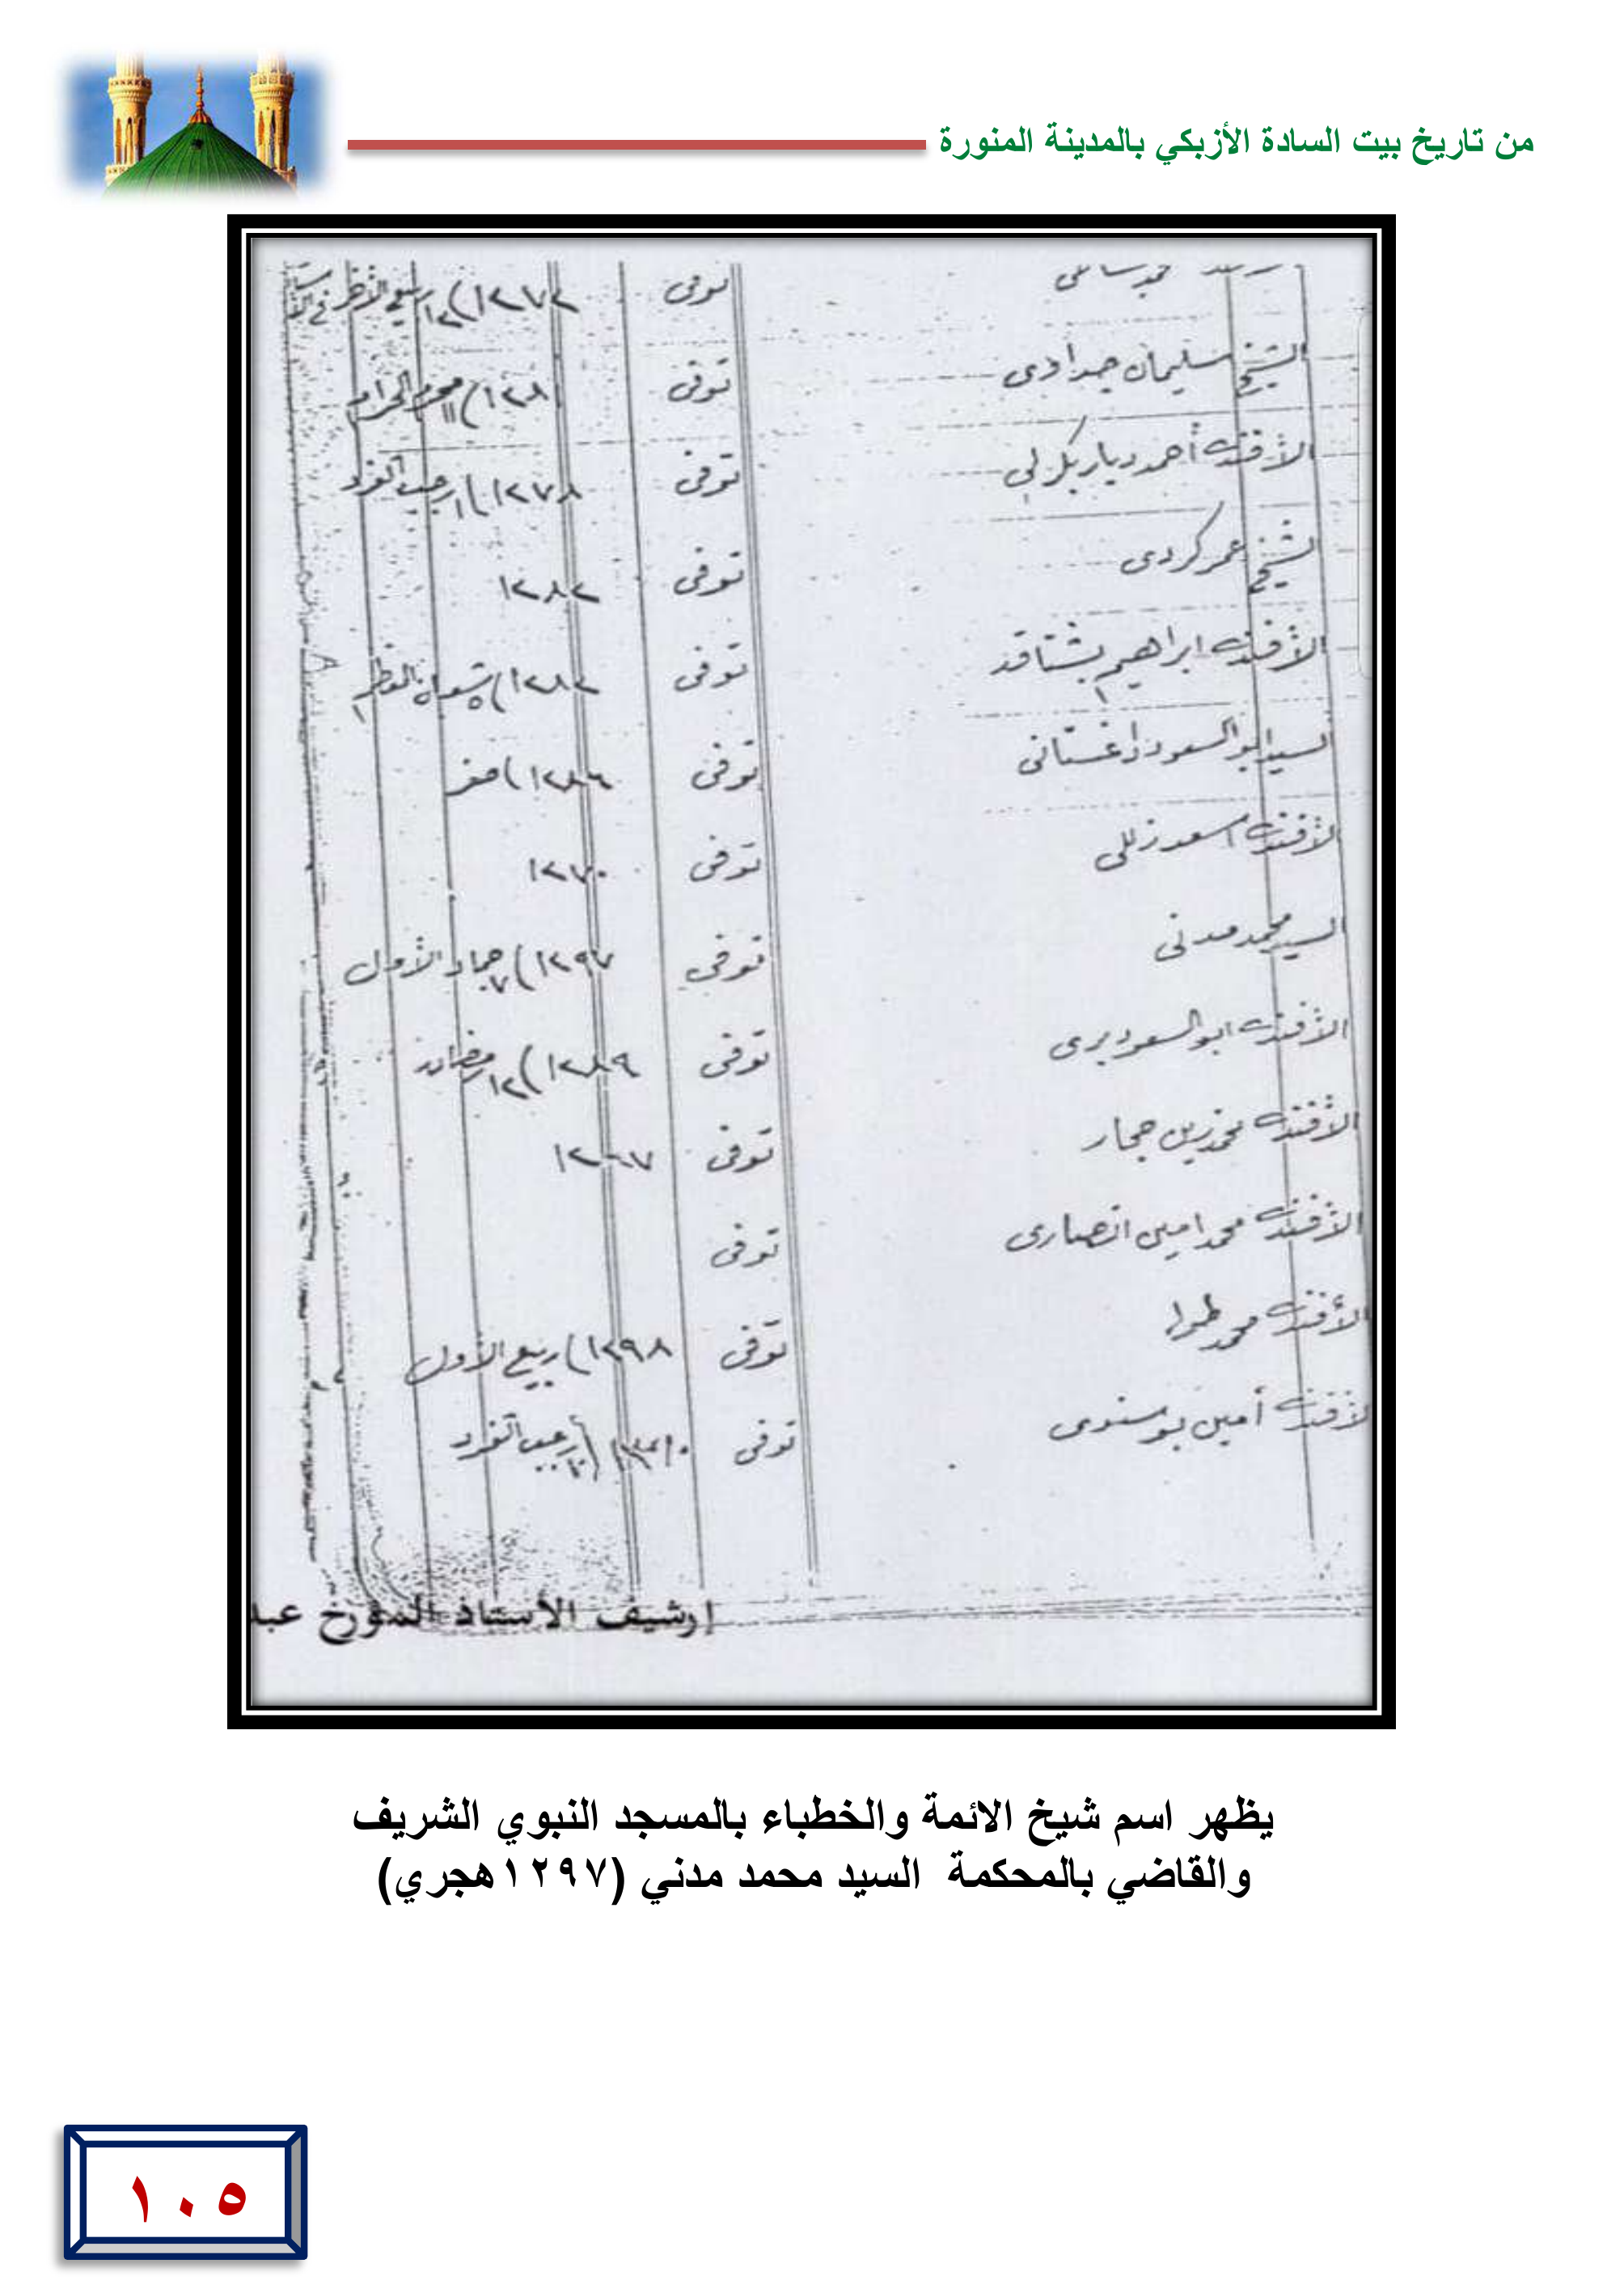 من تاريخ بيت السادة الأزبكي بالمدينة المنورة
توفى ١٢٧٢) ١٢ ربيع الأخر
الشيخ سليمان جداوى توفى ١٢٨١) ١١ محرم الحرام
الأفندى أحمد ديار بكرلى توفى ١٢٧٨) ١ رجب الفرد
الشيخ عمر كردى توفى ١٢٨٢
الأفندى ابراهيم توفى ١٢٨٢) ٥ شوال
السيد ابو السعود داغستانى توفى ١٢٨٦) صفر
الأفندى توفى ١٢٧٠
السيد محمد مدنى توفى ١٢٩٧) ٧ جماد الأول
الأفندى ابو السعود توفى ١٢٨٩) ١٢ رمضان
الأفندى محمد زين توفى
الأفندى محمد امين انصارى توفى
الأفندى محمد توفى ١٢٩٨) ربيع الأول
الأفندى أمين بوسنوى توفى رجب الفرد
إرشيف الأستاذ المؤرخ عبد
يظهر اسم شيخ الائمة والخطباء بالمسجد النبوي الشريف
والقاضي بالمحكمة السيد محمد مدني (١٢٩٧هجري)
١٠٥